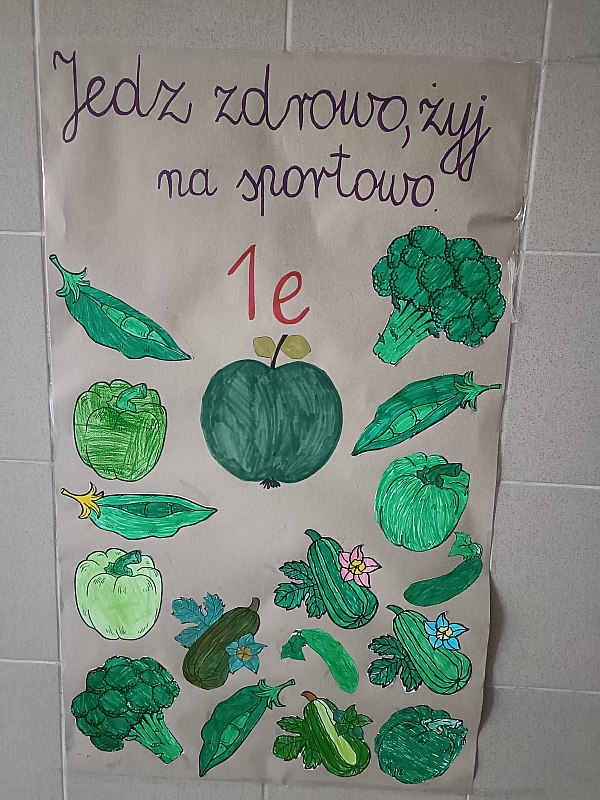 Jedz zdrowo, żyj
na sportowo.
1e